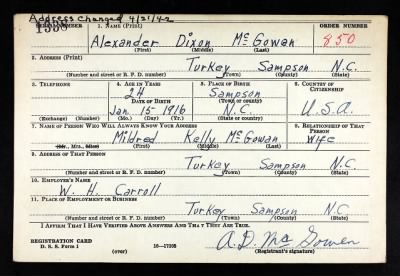 Address Changed 4/21/42
SERIAL NUMBER 1. NAME (Print) ORDER NUMBER
1336 Alexander Dixon McGowan 850
(First) (Middle) (Last)
2. ADDRESS (Print)
Turkey Sampson N.C.
(Number and street or R. F. D. number) (Town) (County) (State)
3. TELEPHONE 4. AGE IN YEARS 5. PLACE OF BIRTH 6. COUNTRY OF CITIZENSHIP
24 Sampson
DATE OF BIRTH (Town or county)
Jan. 15 1916 N.C. U.S.A.
(Exchange) (Number) (Mo.) (Day) (Yr.) (State or country)
7. NAME OF PERSON WHO WILL ALWAYS KNOW YOUR ADDRESS 8. RELATIONSHIP OF THAT PERSON
Mildred Kelly McGowan Wife
(Mr., Mrs., Miss) (First) (Middle) (Last)
9. ADDRESS OF THAT PERSON
Turkey Sampson N.C.
(Number and street or R. F. D. number) (Town) (County) (State)
10. EMPLOYER'S NAME
W. H. Carroll
11. PLACE OF EMPLOYMENT OR BUSINESS
Turkey Sampson N.C.
(Number and street or R. F. D. number) (Town) (County) (State)
I AFFIRM THAT I HAVE VERIFIED ABOVE ANSWERS AND THAT THEY ARE TRUE.
REGISTRATION CARD A. D. McGowen
D. S. S. Form 1 (over) 16—17105 (Registrant's signature)